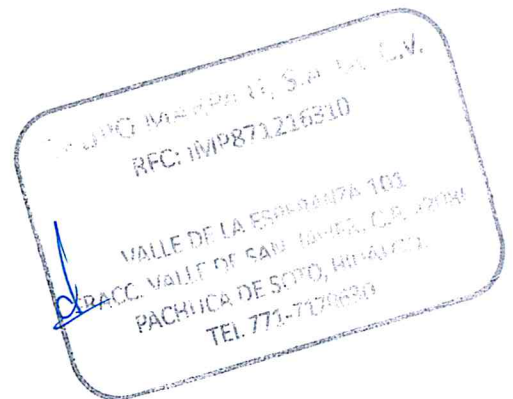 S.A. DE C.V.
RFC: IMP871216310
VALLE DE LA ESPERANZA 101
FRACC. VALLE DE SAN JAVIER, C.P.
PACHUCA DE SOTO, HIDALGO.
TEL. 771-7179630